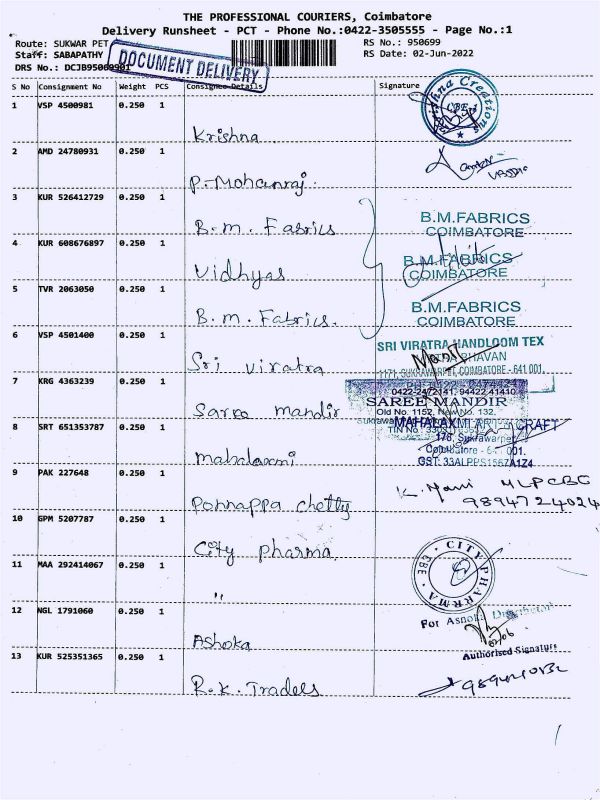 THE PROFESSIONAL COURIERS, Coimbatore
Delivery Runsheet - PCT - Phone No.:0422-3505555 - Page No.:1
Route: SUKWAR PET
RS No.: 950699
Staff: SABAPATHY
RS Date: 02-Jun-2022
DRS No.: DCJB950699901
DOCUMENT DELIVERY
S No Consignment No Weight PCS Consignee Details Signature
1 VSP 4500981 0.250 1
Krishna
CBE-1
2 AMD 24780931 0.250 1
P. Mohanraj
3 KUR 526412729 0.250 1
B.M. Fabrics
B.M.FABRICS
COIMBATORE
4 KUR 608676897 0.250 1
Vidhyas
B.M.FABRICS
COIMBATORE
5 TVR 2063050 0.250 1
B.M. Fabrics.
B.M.FABRICS
COIMBATORE
6 VSP 4501400 0.250 1
Sri Viratra
SRI VIRATRA HANDLOOM TEX
BHAVAN
1171, SUKRAWARPET, COIMBATORE - 641 001.
7 KRG 4363239 0.250 1
Saree mandir
SAREE MANDIR
Old No. 1152, New No. 132,
8 SRT 651353787 0.250 1
Mahalaxmi
MAHALAXMI ART CRAFT
176, Sukrawarpet
Coimbatore - 641 001.
9 PAK 227648 0.250 1
Ponnappa chetty
K. Mani
9894724024
10 GPM 5207787 0.250 1
City Pharma
CITY PHARMA
CBE
11 MAA 292414067 0.250 1
"
For Ashoka Distributor
12 NGL 1791060 0.250 1
Ashoka
Authorised Signature
13 KUR 525351365 0.250 1
R.K. Traders